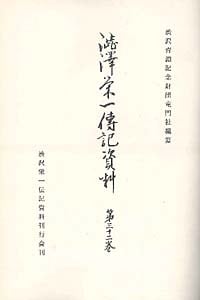 渋沢青淵記念財団竜門社編纂
澁澤榮一傳記資料
第三十二巻
渋沢栄一伝記資料刊行会刊